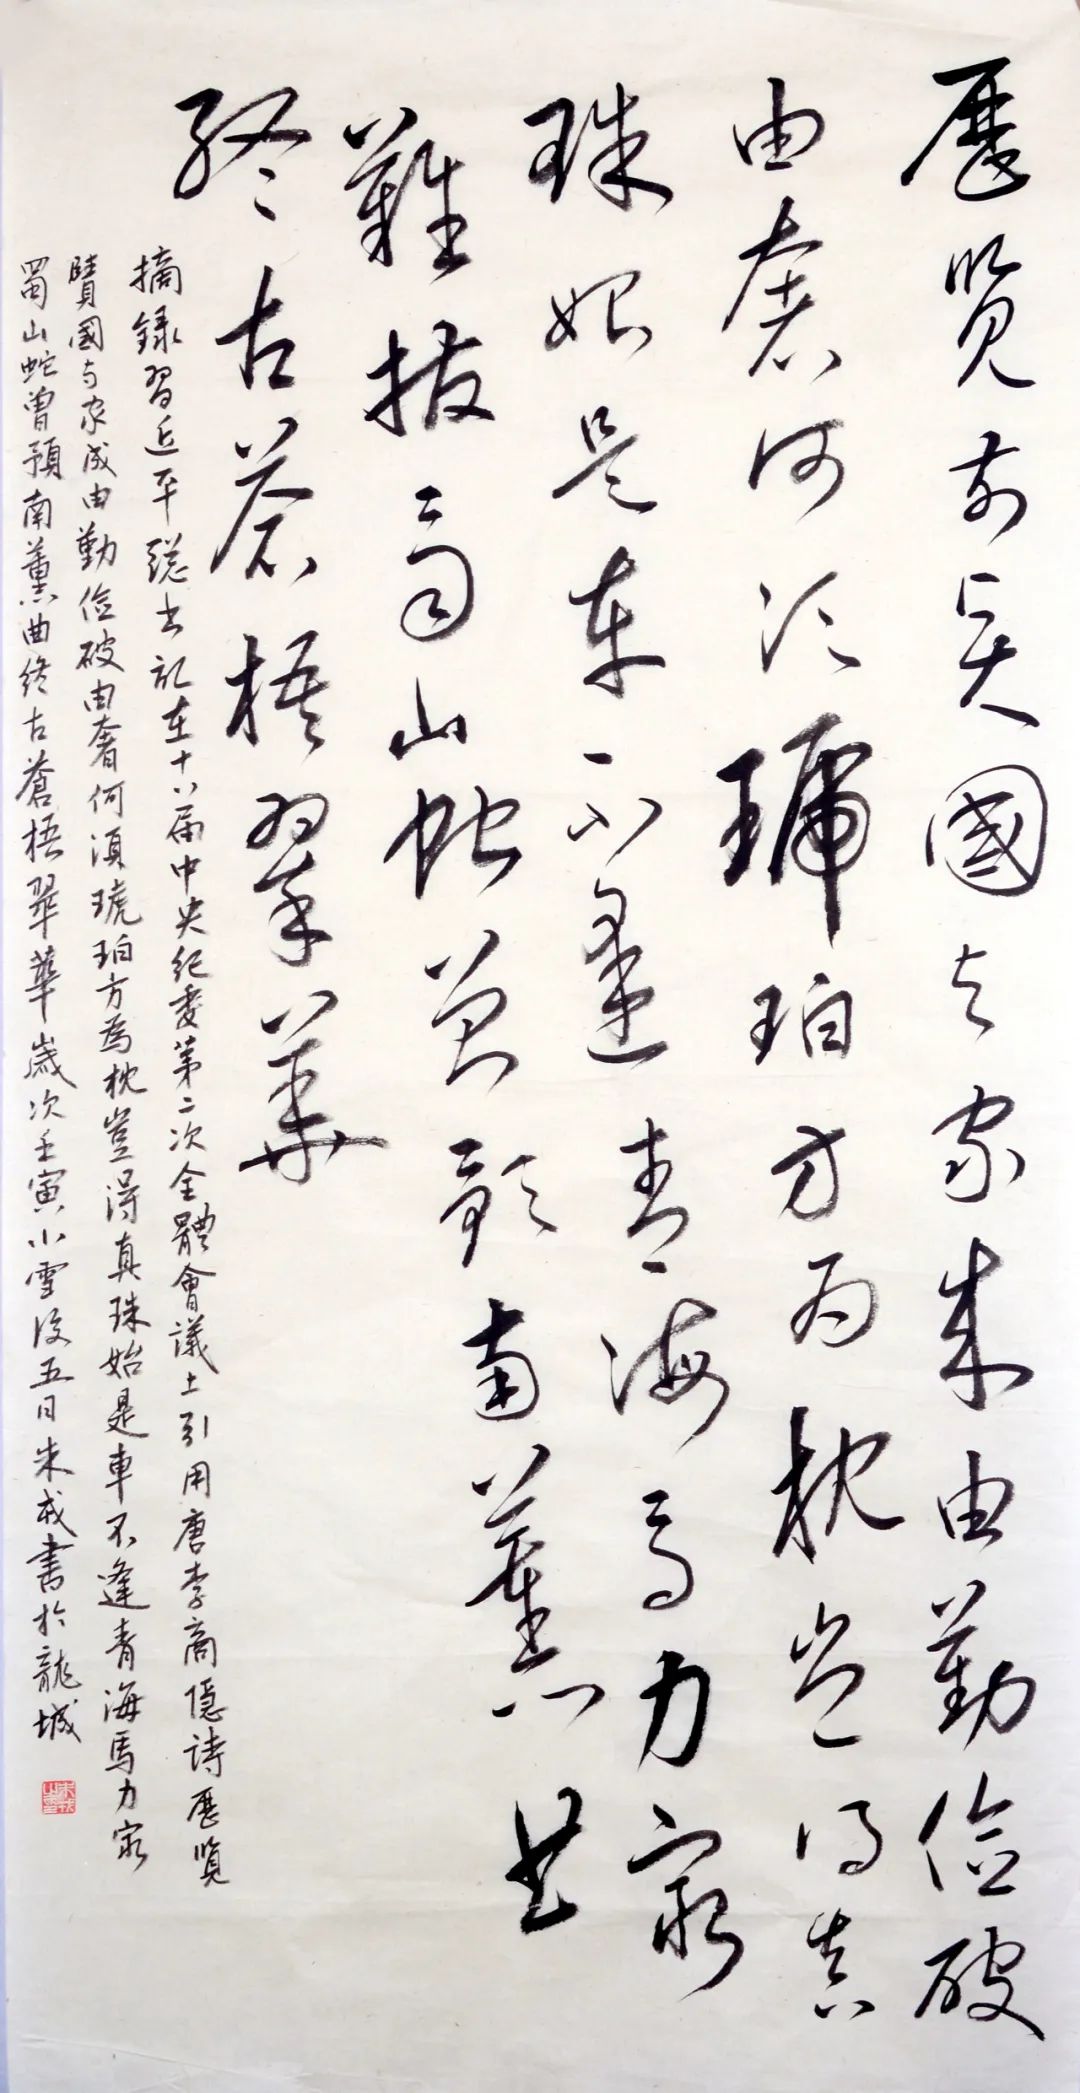 歷覽前賢國与家成由勤儉破
由奢何須琥珀方為枕豈得真
珠始是車不逢青海馬力窮
難拔蜀山蛇曾預南薰曲
終古蒼梧翠華
摘録習近平總書記在十八届中央紀委第二次全體會議上引用唐李商隱詩歷覽
賢國与家成由勤儉破由奢何須琥珀方為枕豈得真珠始是車不逢青海馬力窮
蜀山蛇曾預南薰曲終古蒼梧翠華歲次壬寅小雪後五日朱戎書於龍城